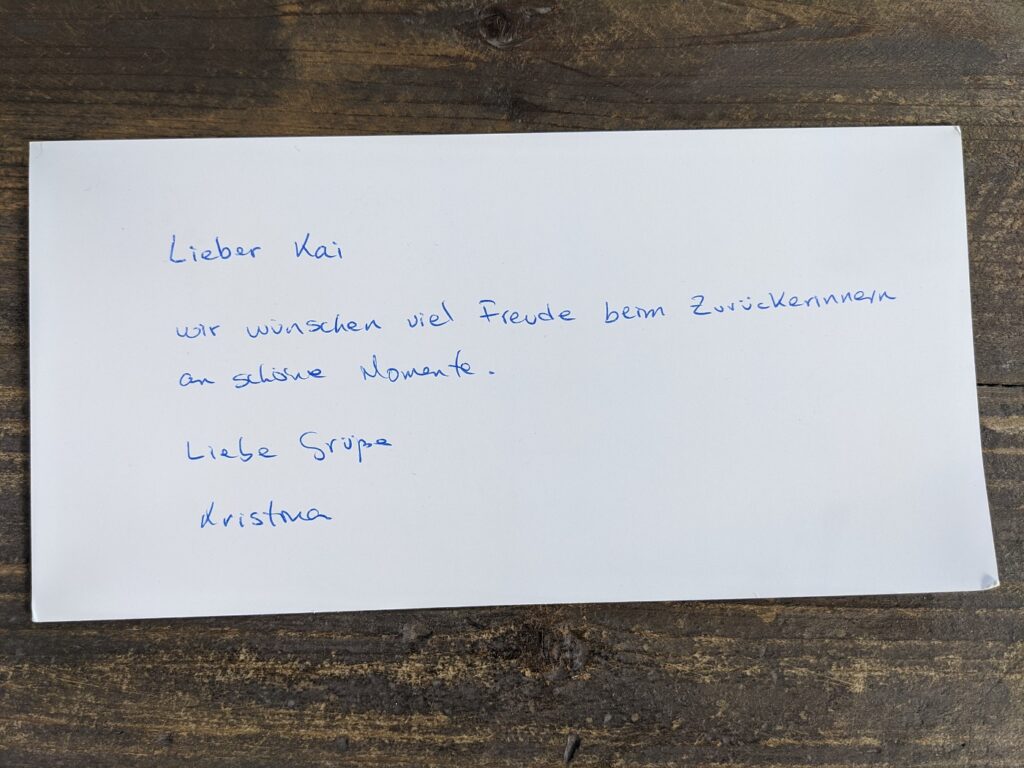 Lieber Kai
wir wünschen viel Freude beim Zurückerinnern
an schöne Momente.
Liebe Grüße
Kristina